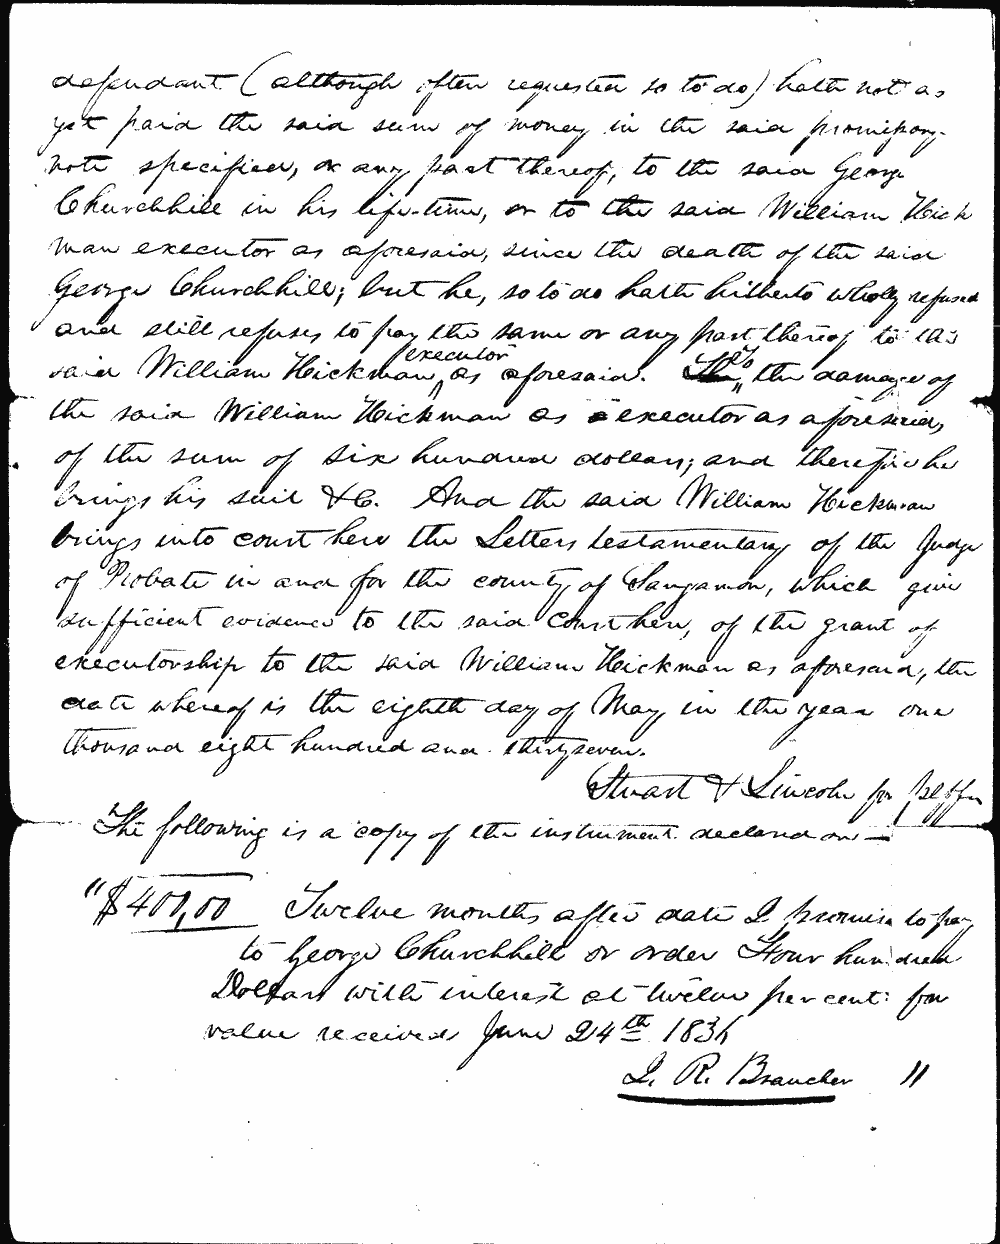 defendant (although often requested so to do) hath not as
yet paid the said sum of money in the said promissory
note specified, or any part thereof, to the said George
Churchhill in his life-time, or to the said William Hick
man executor as aforesaid, since the death of the said
George Churchhill; but he, so to do hath hitherto wholly refused
and still refuses to pay the same or any part thereof to the
executor
said William Hickman as aforesaid. To the damage of
the said William Hickman as executor as aforesaid,
of the sum of six hundred dollars; and therefore he
brings his suit &C. And the said William Hickman
brings into court here the Letters testamentary of the Judge
of Probate in and for the county of Sangamon, which give
sufficient evidence to the said Court here, of the grant of
executorship to the said William Hickman as aforesaid, the
date whereof is the eighth day of May in the year one
thousand eight hundred and thirty seven.
Stuart & Lincoln for plffs
The following is a copy of the instrument declared on—
"$400,00 Twelve months after date I promise to pay
to George Churchhill or order Four hundred
Dollars with interest at twelve per cent: for
value received June 24th 1836
I. R. Braucher "